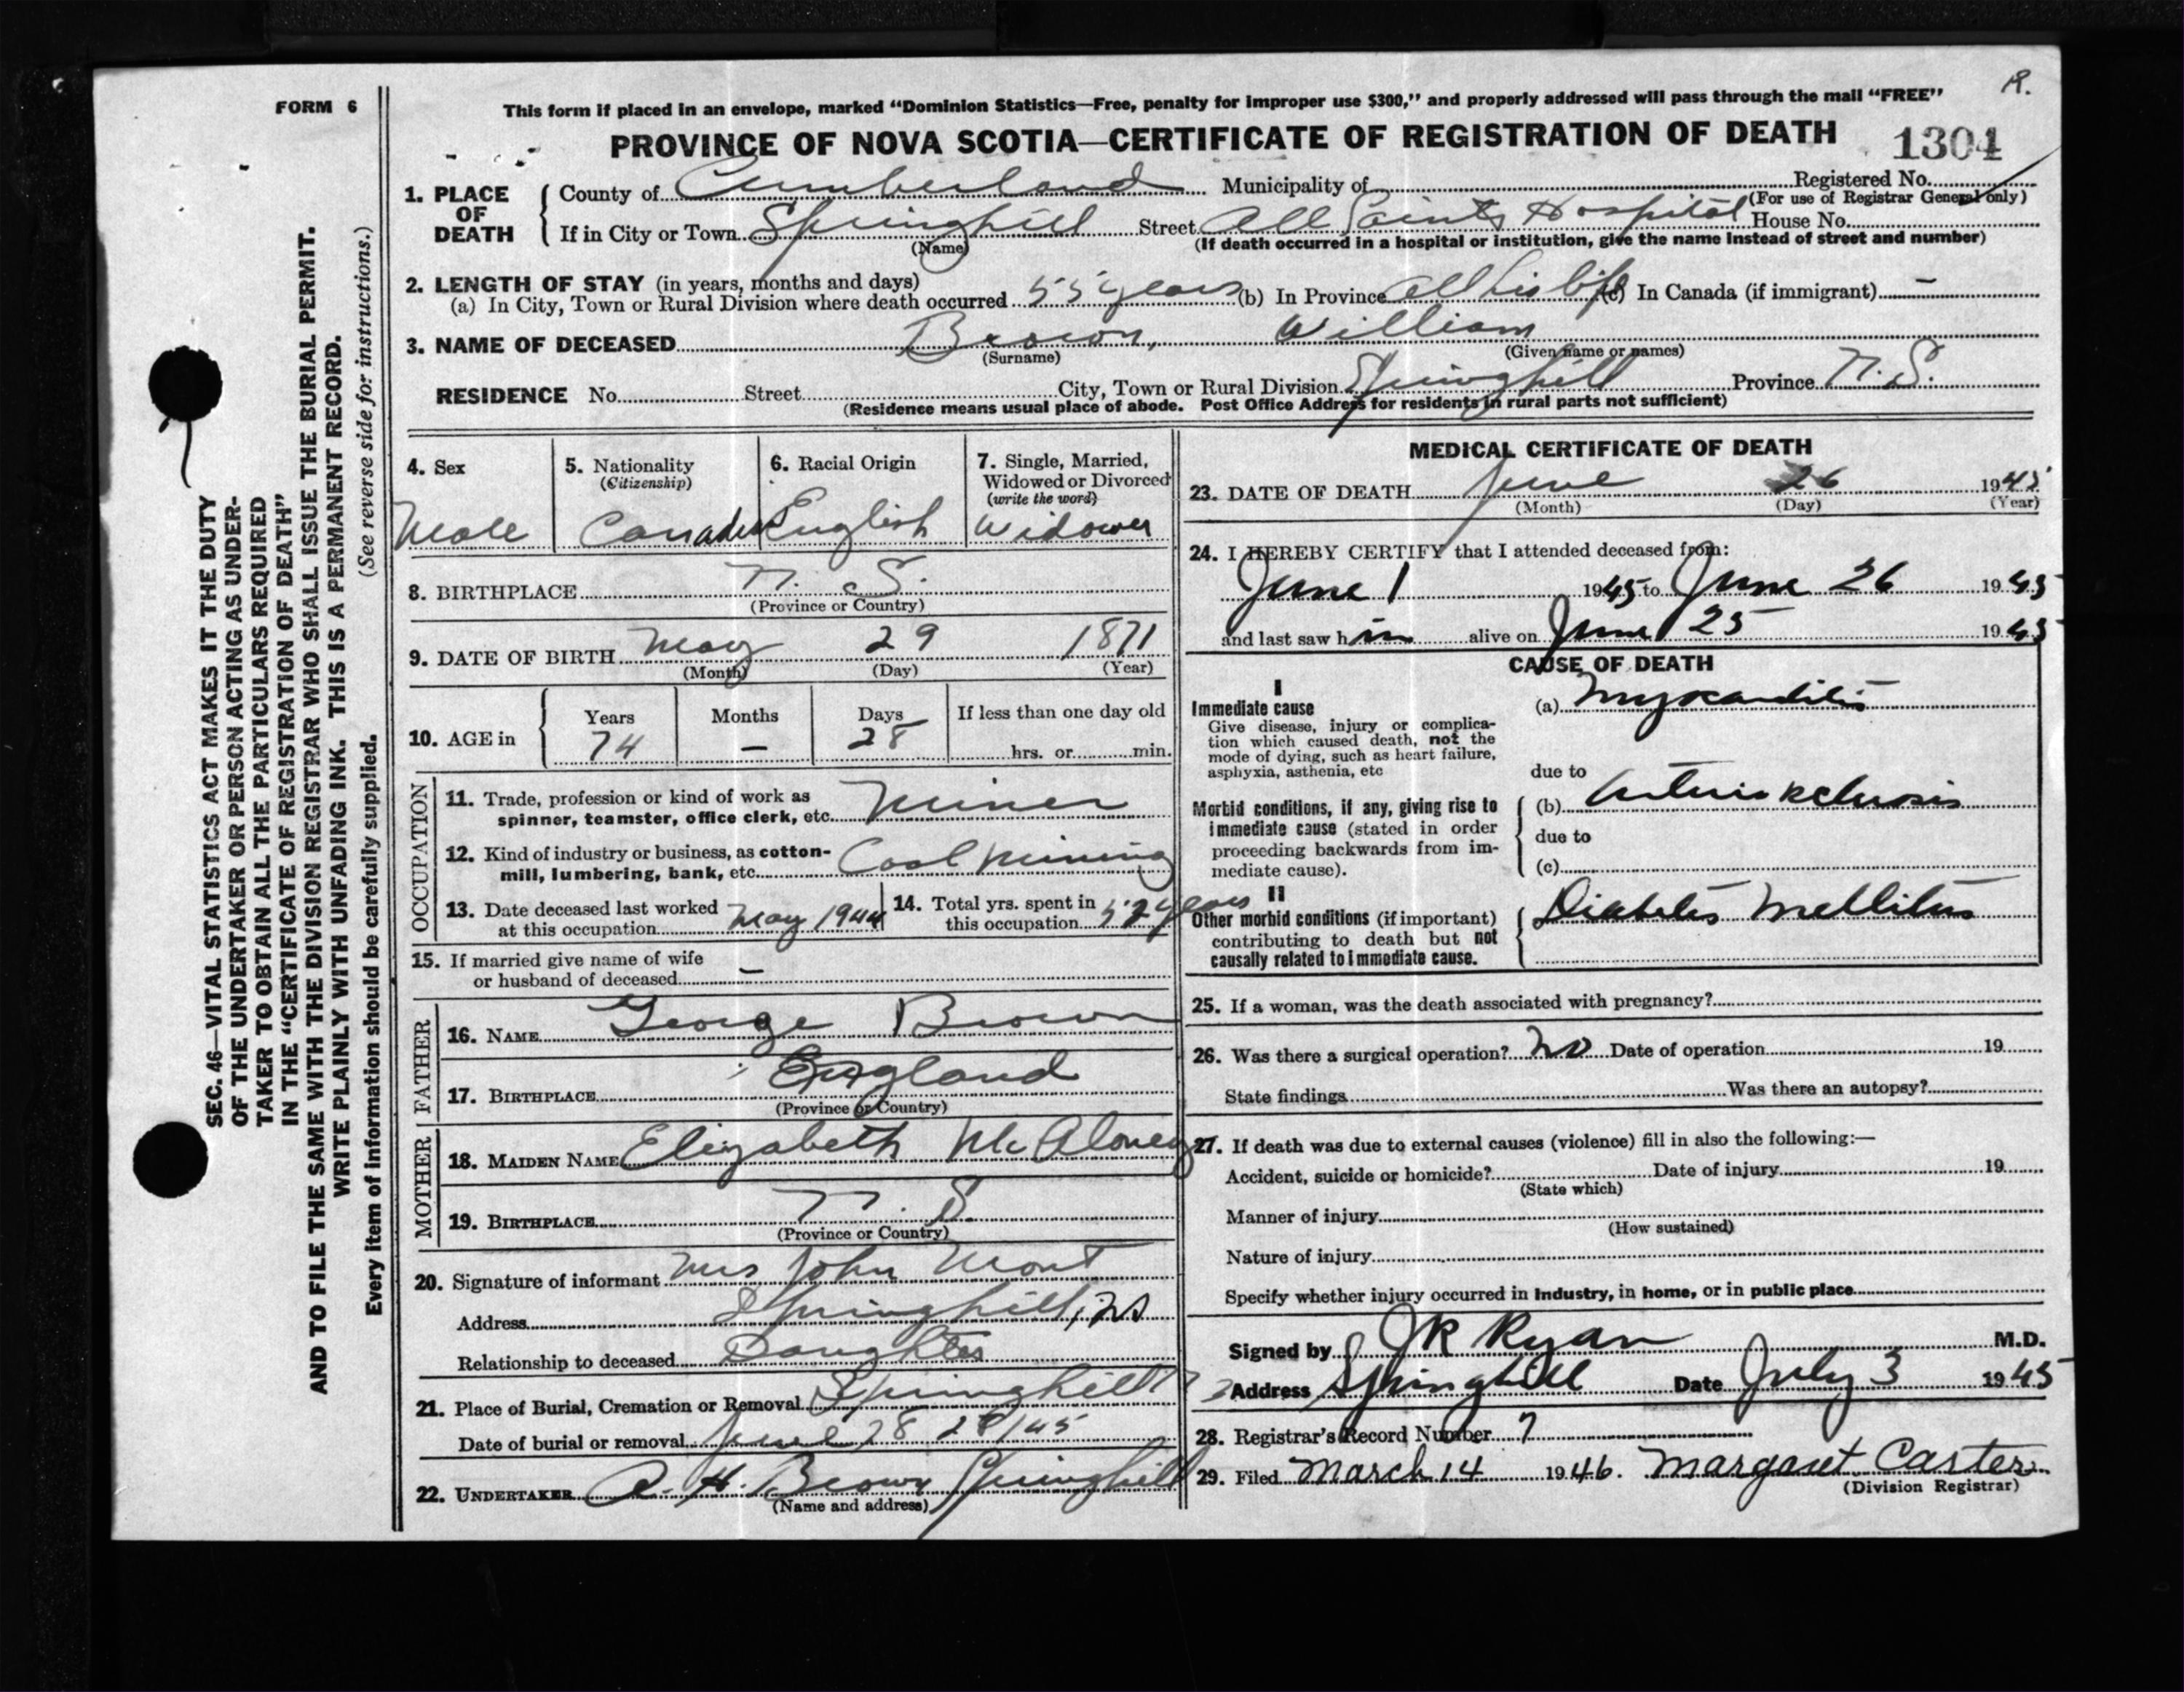 R.
FORM 6
This form if placed in an envelope, marked "Dominion Statistics—Free, penalty for improper use $300," and properly addressed will pass through the mail "FREE"
PROVINCE OF NOVA SCOTIA—CERTIFICATE OF REGISTRATION OF DEATH
1304
1. PLACE OF DEATH
County of Cumberland Municipality of Registered No.
(For use of Registrar General only)
If in City or Town Springhill Street All Saints Hospital House No.
(Name) (If death occurred in a hospital or institution, give the name instead of street and number)
2. LENGTH OF STAY (in years, months and days)
(a) In City, Town or Rural Division where death occurred 55 years (b) In Province All his life (c) In Canada (if immigrant) —
3. NAME OF DECEASED Brown, William
(Surname) (Given name or names)
RESIDENCE No. Street City, Town or Rural Division Springhill Province N. S.
(Residence means usual place of abode. Post Office Address for residents in rural parts not sufficient)
4. Sex
Male
5. Nationality
(Citizenship)
Canadian
6. Racial Origin
English
7. Single, Married, Widowed or Divorced
(write the word)
Widower
8. BIRTHPLACE N. S.
(Province or Country)
9. DATE OF BIRTH May 29 1871
(Month) (Day) (Year)
10. AGE in
Years Months Days If less than one day old
74 — 28 hrs. or min.
OCCUPATION
11. Trade, profession or kind of work as
spinner, teamster, office clerk, etc. Miner
12. Kind of industry or business, as cotton-
mill, lumbering, bank, etc. Coal Mining
13. Date deceased last worked
at this occupation May 1944
14. Total yrs. spent in
this occupation 52 years
15. If married give name of wife
or husband of deceased —
FATHER
16. NAME George Brown
17. BIRTHPLACE England
(Province or Country)
MOTHER
18. MAIDEN NAME Elizabeth McAloney
19. BIRTHPLACE N. S.
(Province or Country)
20. Signature of informant Mrs John Mont
Address Springhill, NS
Relationship to deceased Daughter
21. Place of Burial, Cremation or Removal Springhill
Date of burial or removal June 28 28/45
22. UNDERTAKER A. H. Brown Springhill
(Name and address)
MEDICAL CERTIFICATE OF DEATH
23. DATE OF DEATH June 26 1945
(Month) (Day) (Year)
24. I HEREBY CERTIFY that I attended deceased from:
June 1 1945 to June 26 1945
and last saw him alive on June 25 1945
CAUSE OF DEATH
I
Immediate cause
Give disease, injury or complica-
tion which caused death, not the
mode of dying, such as heart failure,
asphyxia, asthenia, etc
(a) Myocarditis
due to
Morbid conditions, if any, giving rise to
immediate cause (stated in order
proceeding backwards from im-
mediate cause).
(b) Arteriosclerosis
due to
(c)
II
Other morbid conditions (if important)
contributing to death but not
causally related to immediate cause.
Diabetes Mellitus
25. If a woman, was the death associated with pregnancy?
26. Was there a surgical operation? No Date of operation 19
State findings Was there an autopsy?
27. If death was due to external causes (violence) fill in also the following:—
Accident, suicide or homicide? Date of injury 19
(State which)
Manner of injury
(How sustained)
Nature of injury
Specify whether injury occurred in industry, in home, or in public place
Signed by JR Ryan M.D.
Address Springhill Date July 3 1945
28. Registrar's Record Number 7
29. Filed March 14 1946. Margaret Carter
(Division Registrar)
SEC. 46—VITAL STATISTICS ACT MAKES IT THE DUTY
OF THE UNDERTAKER OR PERSON ACTING AS UNDER-
TAKER TO OBTAIN ALL THE PARTICULARS REQUIRED
IN THE "CERTIFICATE OF REGISTRATION OF DEATH"
AND TO FILE THE SAME WITH THE DIVISION REGISTRAR WHO SHALL ISSUE THE BURIAL PERMIT.
WRITE PLAINLY WITH UNFADING INK. THIS IS A PERMANENT RECORD.
Every item of information should be carefully supplied. (See reverse side for instructions.)